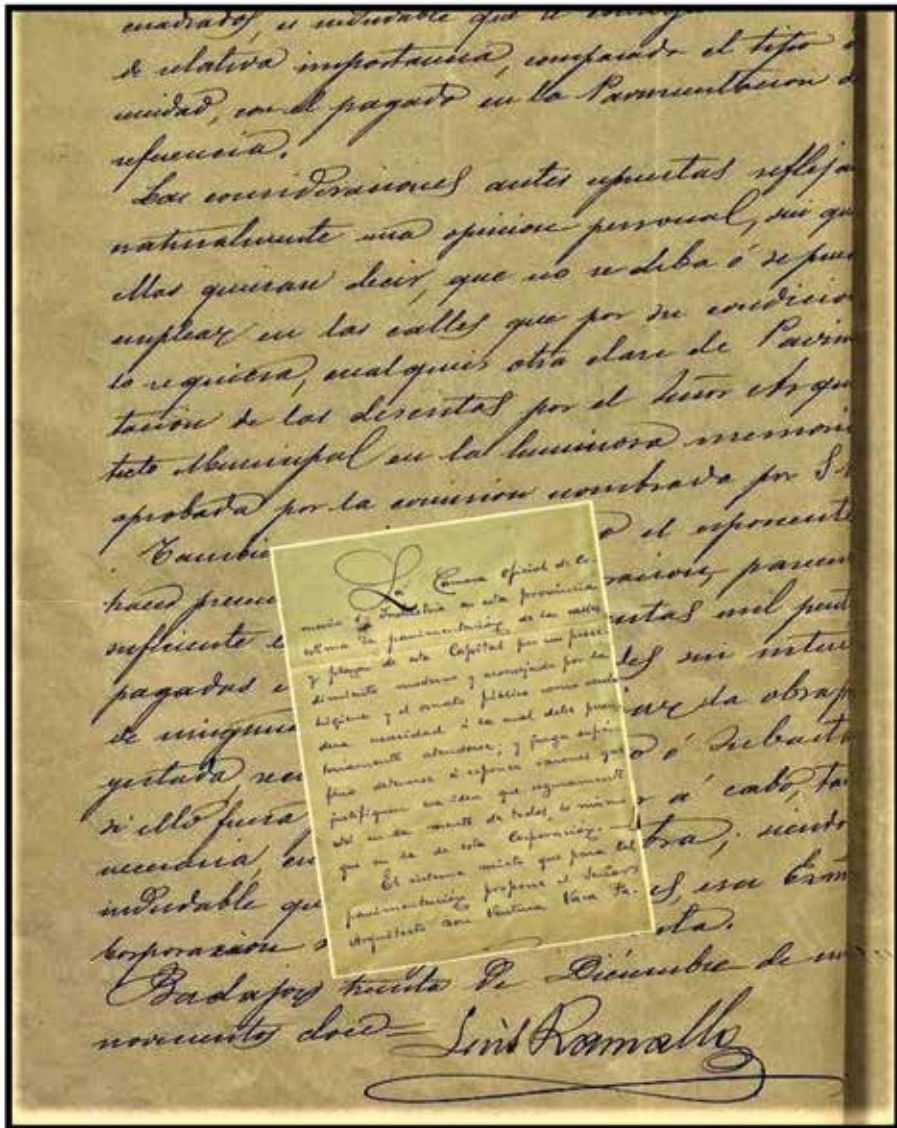 cuadrados, es indudable que se
de relativa importancia, comparado el tipo
unidad, con el pagado en la Pavimentacion
referencia.
Las consideraciones antes expuestas reflejan
naturalmente una opinion personal, sin que
ellas quieran decir, que no se deba ó se pue
emplear en las calles que por su condicion
lo requiera, cualquier otra clase de Pavim
tación de las descritas por el Señor Arqui
tecto Municipal en la luminosa memoria
aprobada por la comision nombrada por S.
Tambie
o el exponente
hace presen
racion, parece
suficiente
entas mil peset
pagadas
des sin inter
de ninguna
la obra p
yectada,
o ó Subasta
si ello fuera
r á cabo, ta
necesaria, en
bra; siendo
indudable qu
es, esa Exm
Corporacion
ota.
Badajoz treinta de Diciembre de
novecientos doce=
Luis Ramallo
La Cámara Oficial de Co-
mercio é Industria de esta provincia
estima la pavimentación de las calles
y plazas de esta Capital por un proce-
dimiento moderno y aconsejado por la
higiene y el ornato público como verda-
dera necesidad á la cual debe peren-
toriamente atenderse; y juzga supér-
fluo detenerse á exponer razones que
justifiquen una idea que seguramente
está en la mente de todos, lo mismo
que en la de esta Corporación.
El sistema mixto que para tal
pavimentación propone el Señor
Arquitecto Don Ventura Vaca Pa-